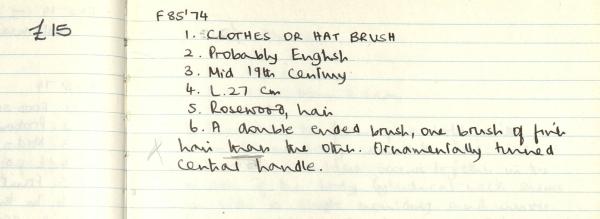 £15
F85'74
1. CLOTHES OR HAT BRUSH
2. Probably English
3. Mid 19th Century
4. L. 27 cm
5. Rosewood, hair
6. A double ended brush, one brush of finer
hair than the other. Ornamentally turned
central handle.